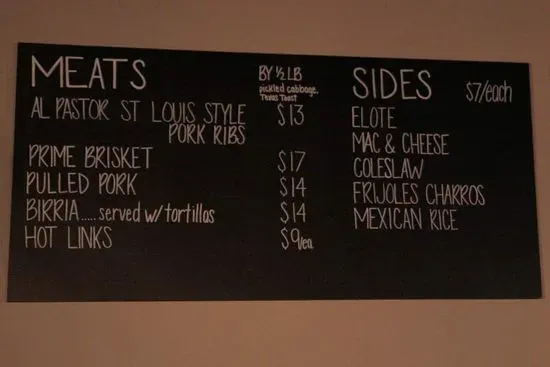 MEATS
BY ½ LB
pickled cabbage,
Texas Toast
AL PASTOR ST LOUIS STYLE
PORK RIBS $13
PRIME BRISKET $17
PULLED PORK $14
BIRRIA.....served w/tortillas $14
HOT LINKS $9/ea.
SIDES $7/each
ELOTE
MAC & CHEESE
COLESLAW
FRIJOLES CHARROS
MEXICAN RICE